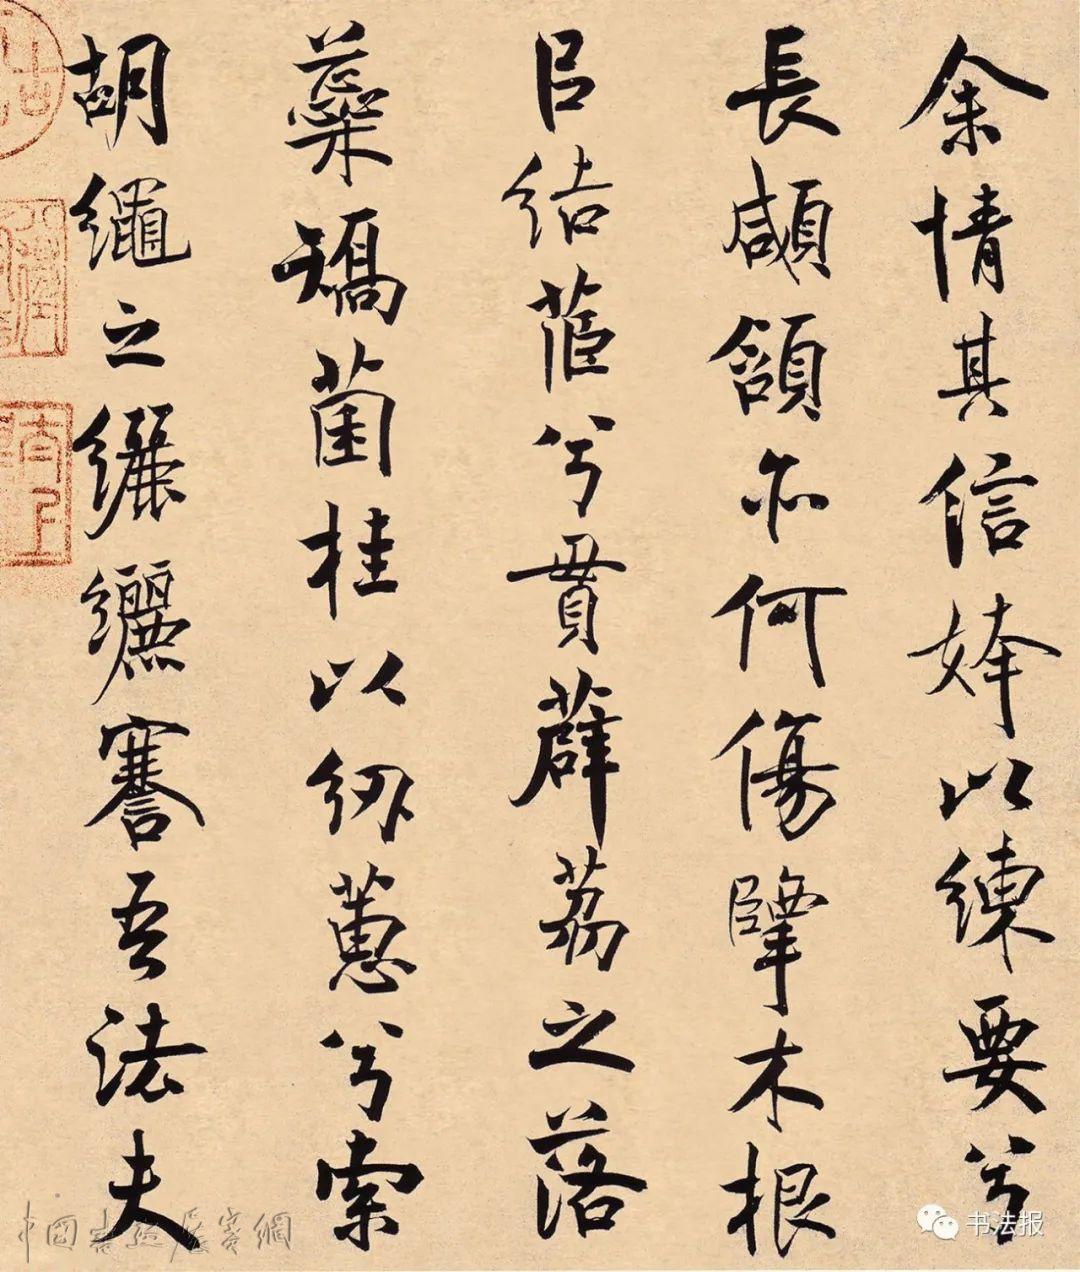 余情其信姱以練要兮
長顑頷亦何傷擥木根
㠯結茝兮貫薜荔之落
蘂矯菌桂以紉蕙兮索
胡繩之纚纚謇吾法夫
中國書法展賽網
书法报